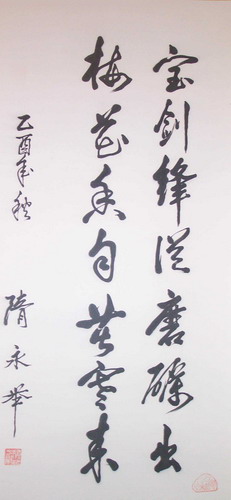 宝剑锋從磨砺出
梅花香自苦寒来
乙酉年秋
隋永